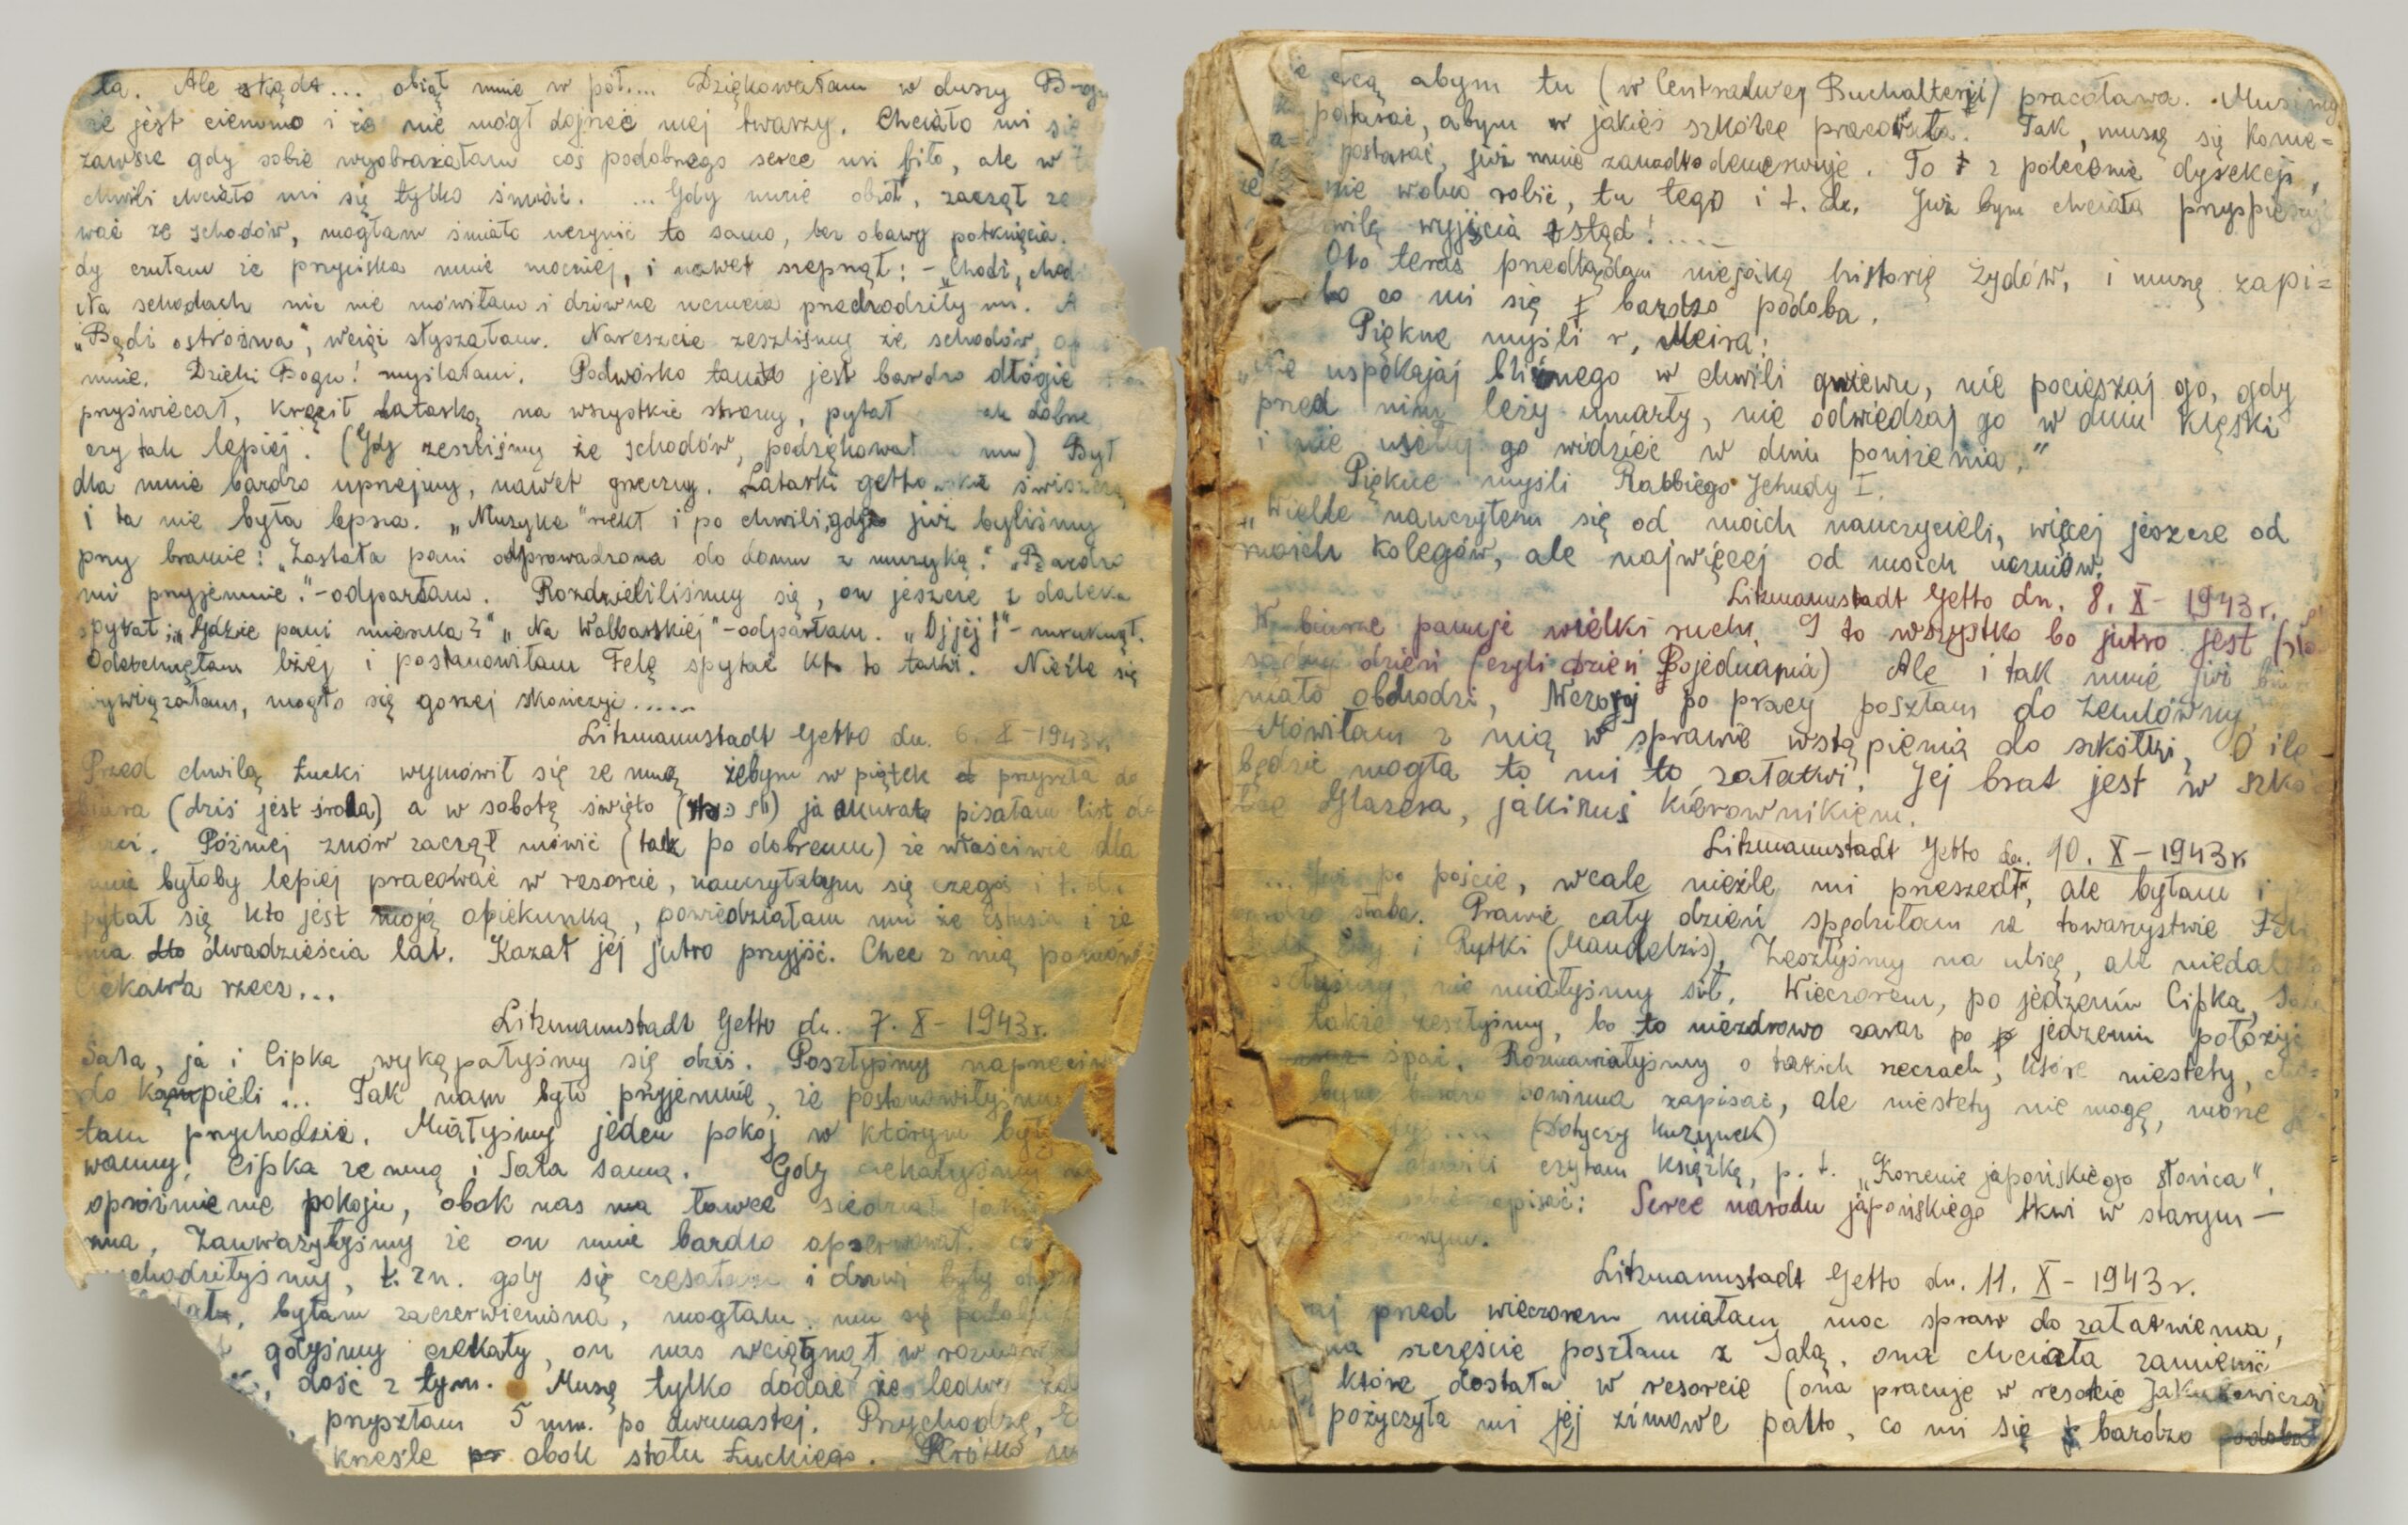 ła. Ale skąd... objął mnie w pół.... Dziękowałam w duszy
że jest ciemno i że nie mógł dojrzeć mej twarzy. Chciało mi się
zawsze gdy sobie wyobrażałam coś podobnego serce mi biło, ale w
chwili chciało mi się tylko śmiać. ... Gdy mnie objął, zaczął
wać ze schodów, mogłam śmiało uczynić to samo, bez obawy potknięcia.
dy czułam że przyciska mnie mocniej, i nawet szepnął: - „Chodź,
Na schodach nic nie mówiłam i dziwne uczucia przechodziły mi. A
„Bądź ostrożna", wciąż słyszałam. Nareszcie zeszliśmy ze schodów,
mnie. Dzięki Bogu! myślałam. Podwórko jest bardzo długie
przyświecał, kręcił latarką na wszystkie strony, pytał dobrze
czy tak lepiej. (Gdy zeszliśmy ze schodów, podziękowałam mu) Był
dla mnie bardzo uprzejmy, nawet grzeczny. Latarki gettowskie
i ta nie była lepsza. „Muzyka" rzekł i po chwili, gdy już byliśmy
przy bramie: „Została pani odprowadzona do domu z muzyką." „Bardzo
mi przyjemnie." - odparłam. Rozdzieliliśmy się, on jeszcze z daleka
spytał: „Gdzie pani mieszka?" „Na Wolborskiej" - odparłam. „Ojjej!" - mruknął.
Odetchnęłam lżej i postanowiłam Felę spytać kto to taki. Nieźle się
wywiązałam, mogło się gorzej skończyć.....
Litzmannstadt Getto dn. 6. X - 1943 r.
Przed chwilą Łucki wymówił się ze mną żebym w piątek przyszła do
biura (dziś jest środa) a w sobotę święto ja akurat pisałam list do
Później znów zaczął mówić (tak po dobremu) że właściwie dla
mnie byłoby lepiej pracować w resorcie, nauczyłabym się czegoś i t.d.
pytał się kto jest moją opiekunką, powiedziałam mu że Estusia i że
ma dwadzieścia lat. Kazał jej jutro przyjść. Chce z nią
Ciekawa rzecz...
Litzmannstadt Getto dn. 7. X - 1943 r.
Sala, ja i Cipka wykąpałyśmy się dziś. Poszłyśmy
do kąpieli... Tak nam było przyjemnie, że postanowiłyśmy
tam przychodzić. Miałyśmy jeden pokój w którym były
wanny. Cipka ze mną i Sala sama. Gdy czekałyśmy
opróżnienie pokoju, obok nas na ławce siedział
na. Zauważyłyśmy że on mnie bardzo opserwował.
chodziłyśmy, t. zn. gdy się czesałam i drzwi były
byłam zaczerwieniona, mogłam mu się
gdyśmy czekały, on nas wciągnął w
dość z tym. Muszę tylko dodać że ledwo
przyszłam 5 min. po dwunastej. Przychodzę,
krześle obok stołu Łuckiego.
cą abym tu (w Centralnej Buchalterji) pracowała. Muszę
postarać, abym w jakiejś szkółce pracowała. Tak, muszę się konie=
postarać, już mnie zanadto denerwuje. To z polecenie dyrekcji,
nie wolno robić, tu tego i t. d. Już bym chciała
wyjścia stąd!.....
Oto teraz przeglądam niejaką historię Żydów, i muszę zapi=
to co mi się bardzo podoba.
Piękne myśli r. Meira:
„Nie uspokajaj bliźnego w chwili gniewu, nie pocieszaj go, gdy
przed nim leży umarły, nie odwiedzaj go w dniu klęski
i nie usiłuj go widzieć w dniu poniżenia."
Piękne myśli Rabbiego Jehudy I.
„Wiele nauczyłem się od moich nauczycieli, więcej jeszcze od
moich kolegów, ale najwięcej od moich uczniów.
Litzmannstadt Getto dn. 8. X - 1943 r.
W biurze panuje wielki ruch. I to wszystko bo jutro jest
sądny dzień (czyli dzień Pojednania) Ale i tak mnie już
mało obchodzi, Wczoraj po pracy poszłam do Zelwówny,
Mówiłam z nią w sprawie wstąpienia do szkółki, O ile
będzie mogła to mi to załatwi. Jej brat jest w
Glazera, jakimś kierownikiem.
Litzmannstadt Getto dn. 10. X - 1943 r.
po poście, wcale nieźle mi przeszedł, ale byłam i
słaba. Prawie cały dzień spędziłam w towarzystwie
i Rytki (Mandelzis). Zeszłyśmy na ulicę, ale
nie miałyśmy sił. Wieczorem, po jedzeniu Cipka,
także zeszłyśmy, bo to niezdrowo zaraz po jedzeniu
spać. Rozmawiałyśmy o takich rzeczach, które niestety,
powinna zapisać, ale niestety nie mogę, może
(Dotyczy kuzynek)
chwili czytam książkę, p. t. „Korzenie japońskiego słońca".
opisać: Serce narodu japońskiego tkwi w starym -
Litzmannstadt Getto dn. 11. X - 1943 r.
przed wieczorem miałam moc spraw do załatwienia,
na szczęście poszłam z Salą. ona chciała zamienić
które dostała w resorcie (ona pracuje w resorcie Jakubowicza
pożyczyła mi jej zimowe palto, co mi się bardzo